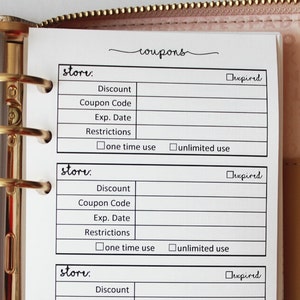 coupons
store: expired
Discount
Coupon Code
Exp. Date
Restrictions
one time use unlimited use
store: expired
Discount
Coupon Code
Exp. Date
Restrictions
one time use unlimited use
store: expired
Discount